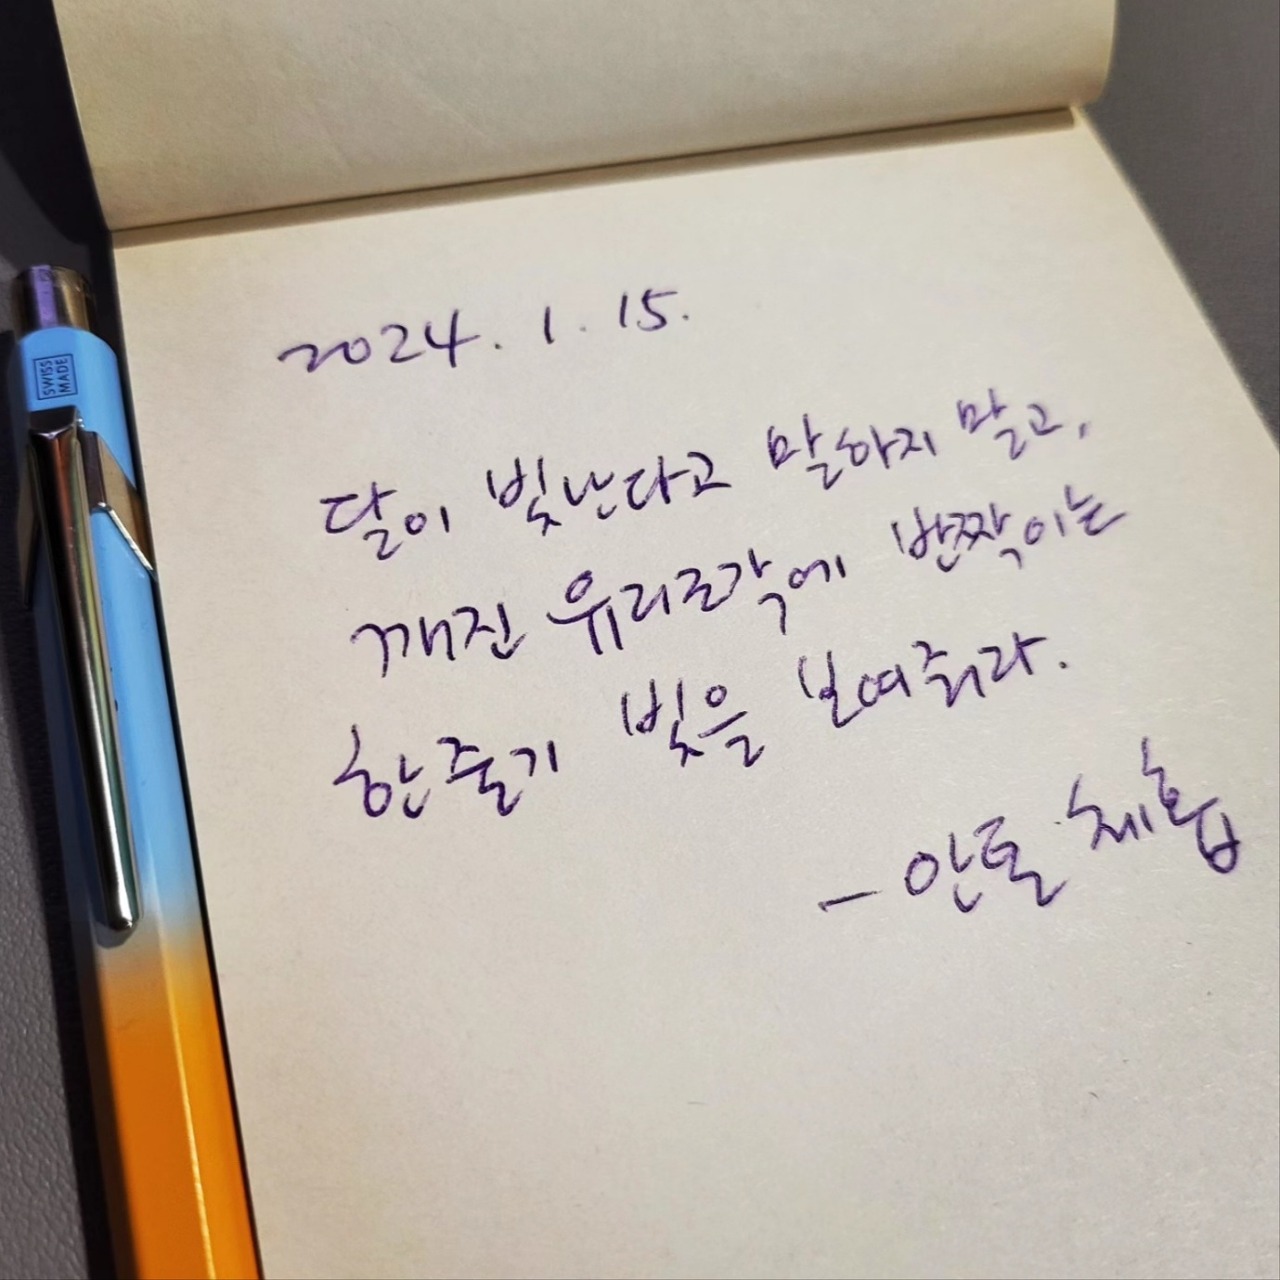 SWISS
MADE
2024. 1. 15.
달이 빛난다고 말하지 말고,
깨진 유리조각에 반짝이는
한줄기 빛을 보여줘라.
- 안톤 체홉